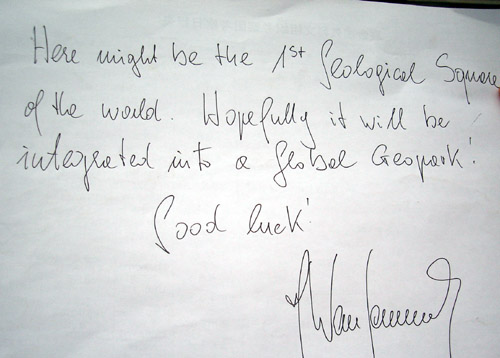 Here might be the 1st Geological Square
of the world. Hopefully it will be
integrated into a Global Geopark!
Good luck!